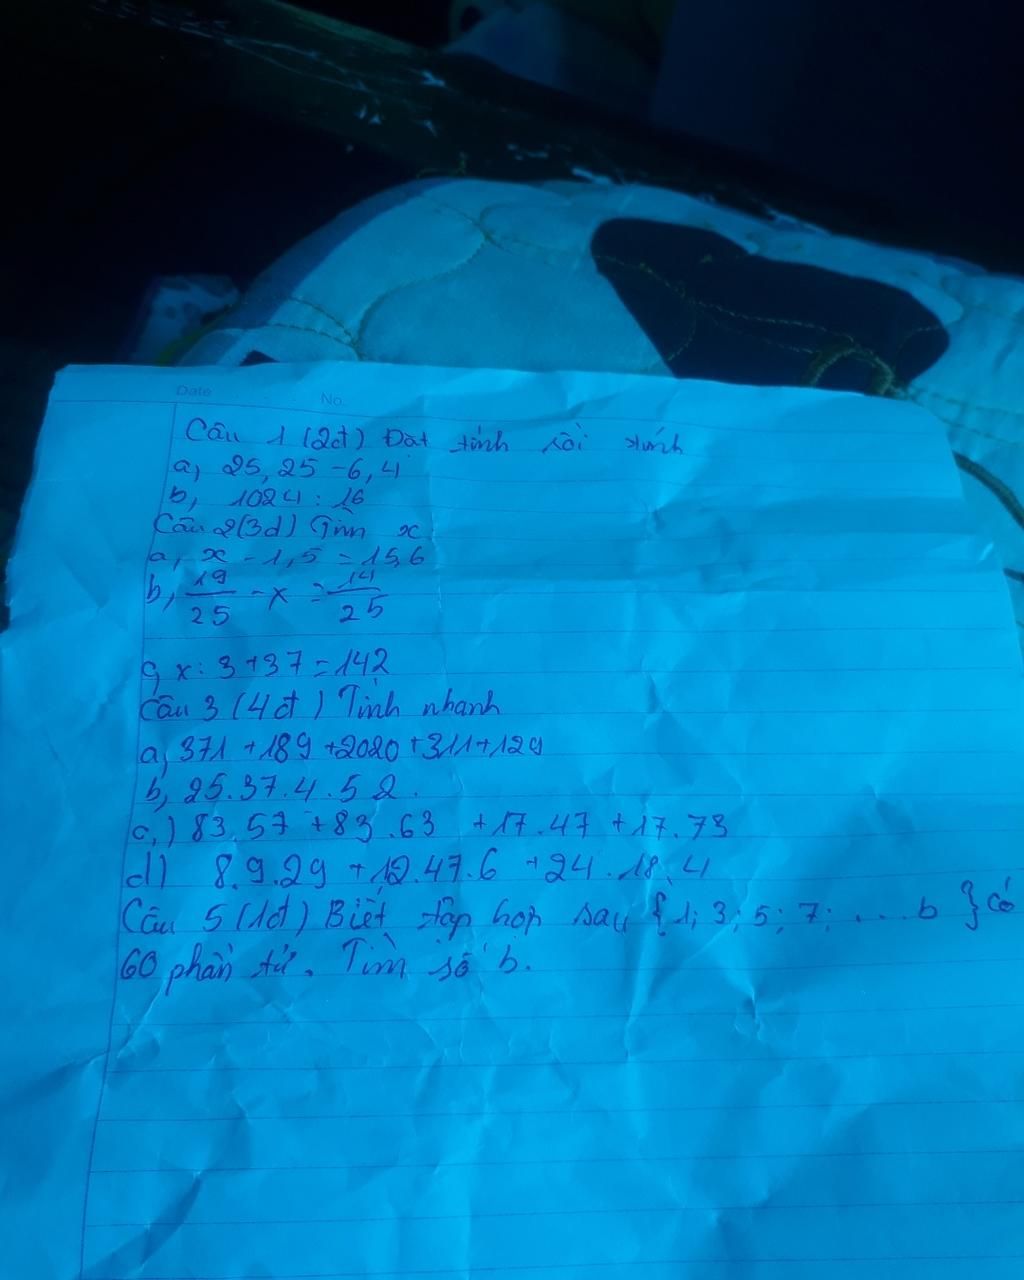 Date
No.
Câu 1 (2đ) Đặt tính rồi tính
a, 25,25 - 6,4
b, 1024 : 16
Câu 2(3đ) Tìm x
a, x - 1,5 = 15,6
b, 19/25 - x = 14/25
c, x : 3 + 37 = 142
Câu 3 (4đ) Tính nhanh
a, 371 + 189 + 2020 + 311 + 129
b, 25.37.4.52.
c,) 83.57 + 83.63 + 17.47 + 17.73
d) 8.9.29 + 12.47.6 + 24.18.4
Câu 5 (1đ) Biết tập hợp sau {1; 3; 5; 7; ....b} có
60 phần tử. Tìm số b.